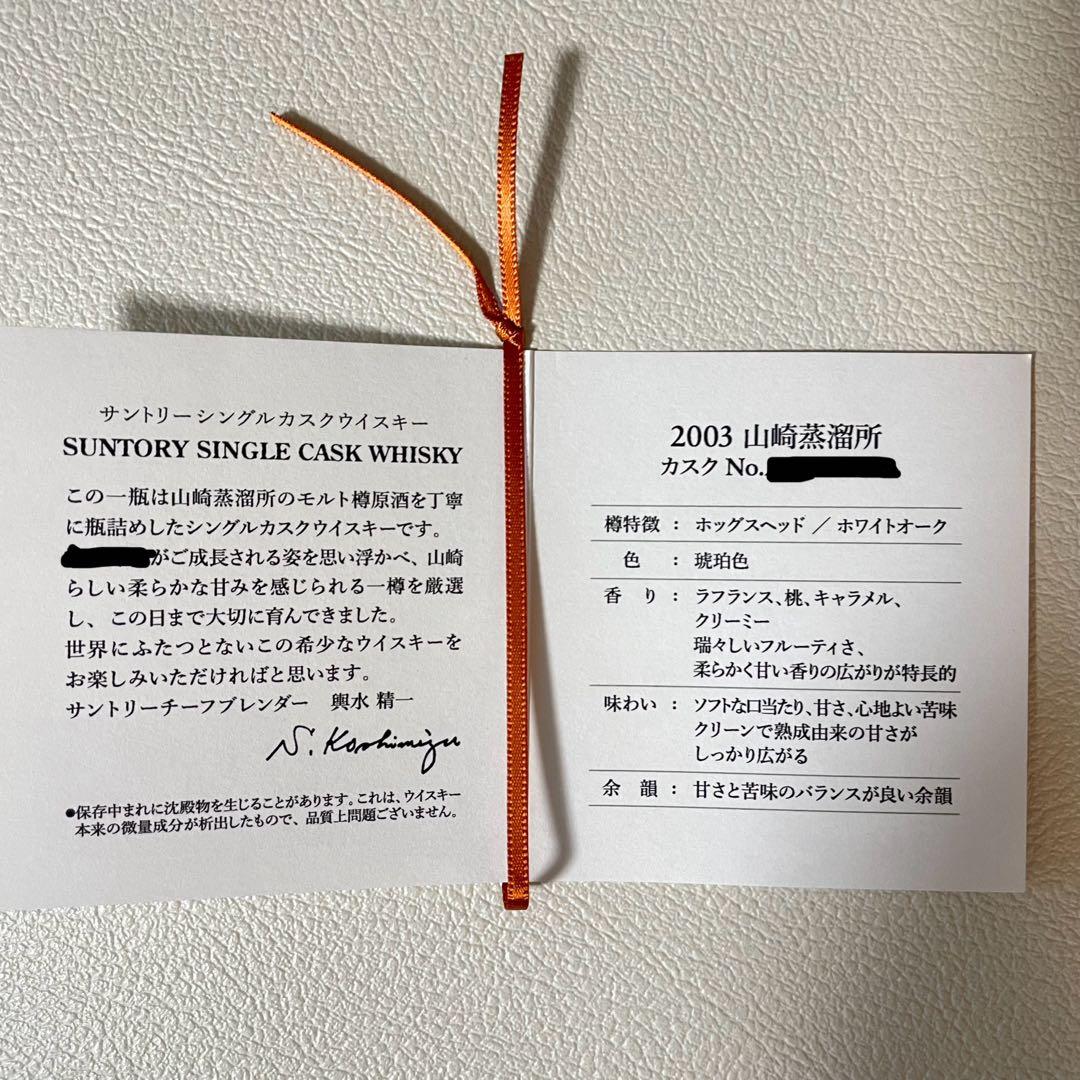 サントリーシングルカスクウイスキー
SUNTORY SINGLE CASK WHISKY
この一瓶は山崎蒸溜所のモルト樽原酒を丁寧
に瓶詰めしたシングルカスクウイスキーです。
がご成長される姿を思い浮かべ、山崎
らしい柔らかな甘みを感じられる一樽を厳選
し、この日まで大切に育んできました。
世界にふたつとないこの希少なウイスキーを
お楽しみいただければと思います。
サントリーチーフブレンダー 輿水 精一
S. Koshimizu
●保存中まれに沈殿物を生じることがあります。これは、ウイスキー
本来の微量成分が析出したもので、品質上問題ございません。
2003 山崎蒸溜所
カスク No.
樽特徴 : ホッグスヘッド / ホワイトオーク
色 : 琥珀色
香り : ラフランス、桃、キャラメル、
クリーミー
瑞々しいフルーティさ、
柔らかく甘い香りの広がりが特長的
味わい : ソフトな口当たり、甘さ、心地よい苦味
クリーンで熟成由来の甘さが
しっかり広がる
余韻 : 甘さと苦味のバランスが良い余韻